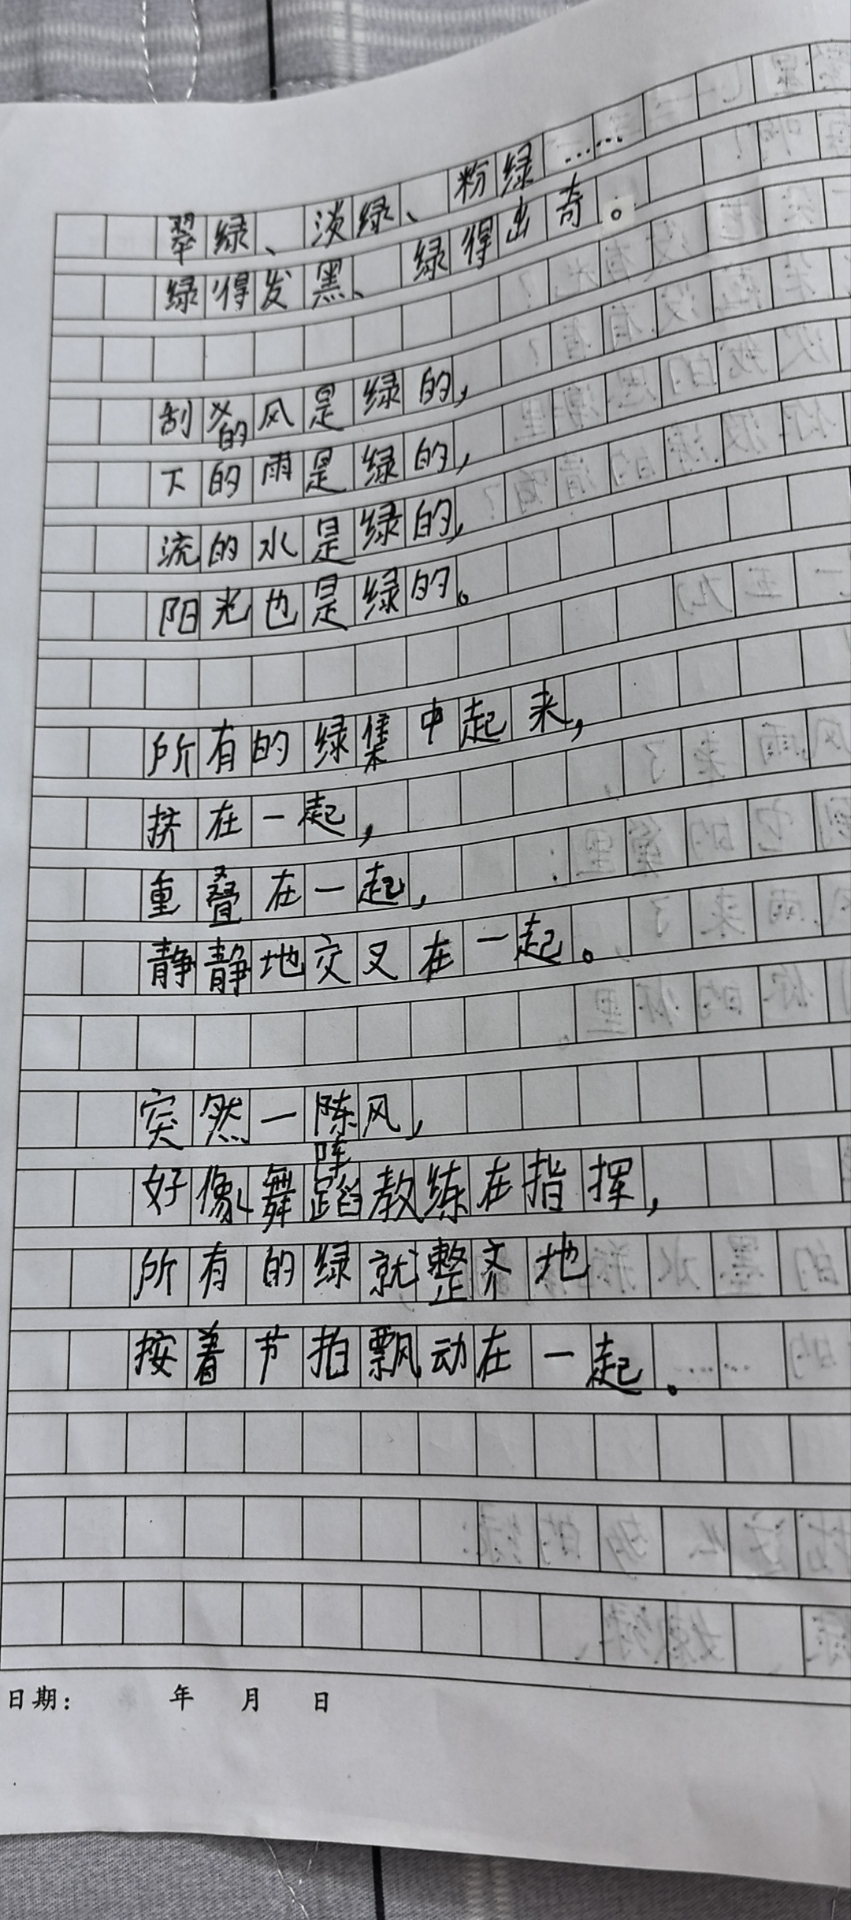 翠绿、淡绿、粉绿……
绿得发黑、绿得出奇。
刮的风是绿的，
下的雨是绿的，
流的水是绿的，
阳光也是绿的。
所有的绿集中起来，
挤在一起，
重叠在一起，
静静地交叉在一起。
突然一阵风，
好像舞蹈教练在指挥，
所有的绿就整齐地
按着节拍飘动在一起。
日期： 年 月 日